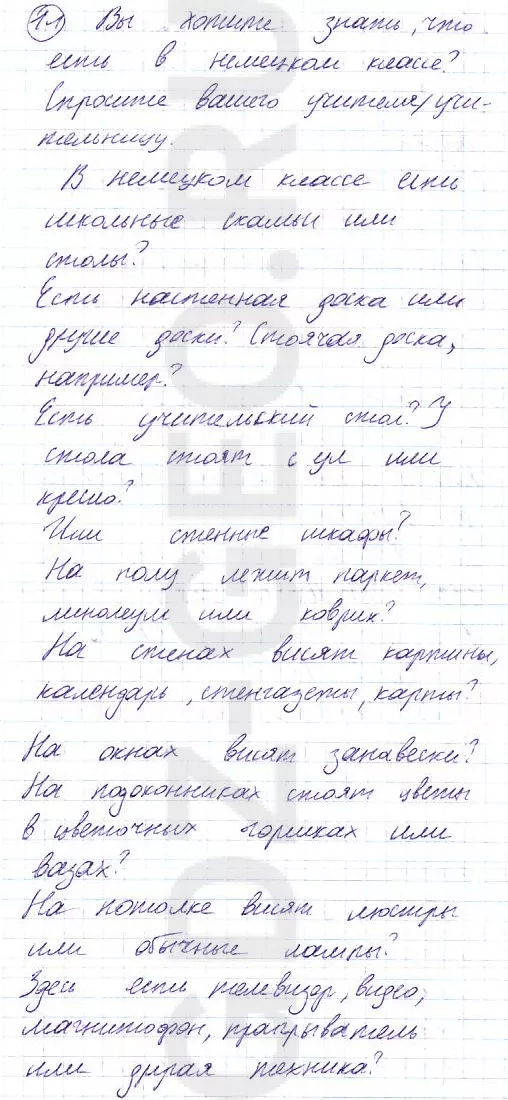 1.1 Вы хотите знать, что
есть в немецком классе?
Спросите вашего учителя/учи-
тельницу.
В немецком классе есть
школьные скамьи или
столы?
Есть настенная доска или
другие доски? Стоячая доска,
например?
Есть учительский стол? У
стола стоят стул или
кресло?
Или стенные шкафы?
На полу лежит паркет,
линолеум или коврик?
На стенах висят картины,
календарь, стенгазеты, карты?
На окнах висят занавески?
На подоконниках стоят цветы
в цветочных горшках или
вазах?
На потолке висят люстры
или обычные лампы?
Здесь есть телевизор, видео,
магнитофон, проигрыватель
или другая техника?
GDZ-GEO.RU